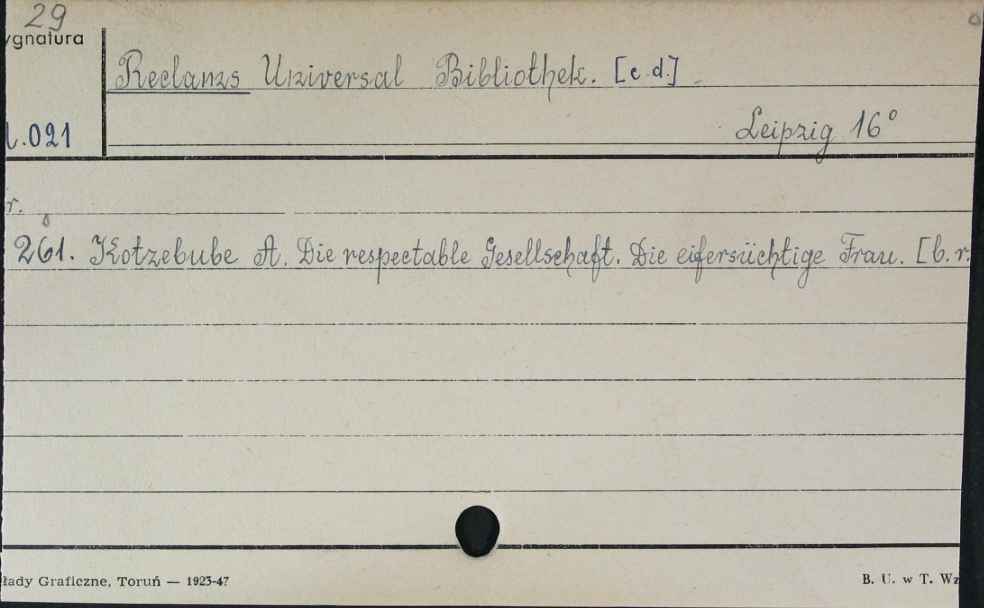 29
ygnatura
Reclams Universal Bibliothek. [c.d.]
Leipzig 16°
.021
r.
261. Kotzebube A. Die respectable Gesellschaft. Die eifersüchtige Frau. [b.r.
łady Graficzne, Toruń — 1923-47
B. U. w T. Wz